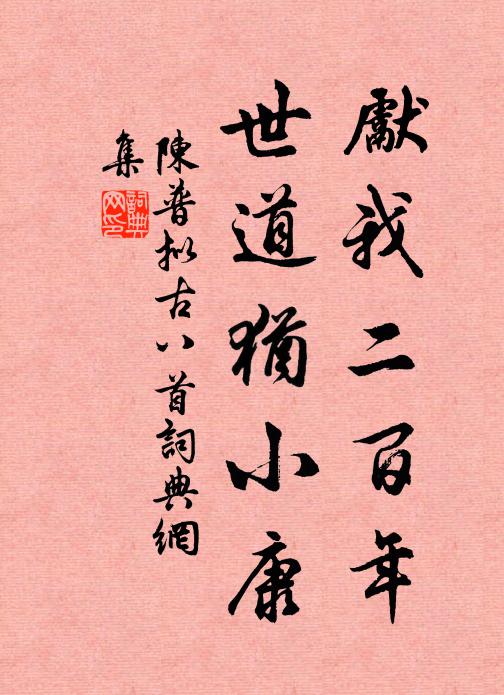 獻我二百年
世道猶小康
陳普拟古八首詞典網
集
詞典网印